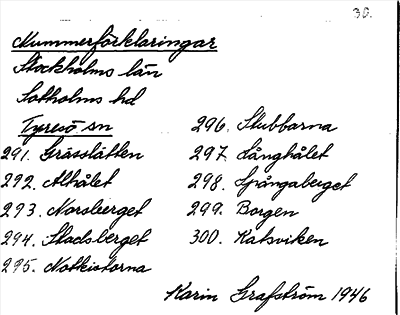 30.
Nummerförklaringar
Stockholms län
Sotholms hd
Tyresö sn
291. Grässlätten
292. Alhålet
293. Norsberget
294. Stadsberget
295. Notkistorna
296. Stubbarna
297. Långhålet
298. Spångaberget
299. Borgen
300. Katsviken
Karin Grafström 1946